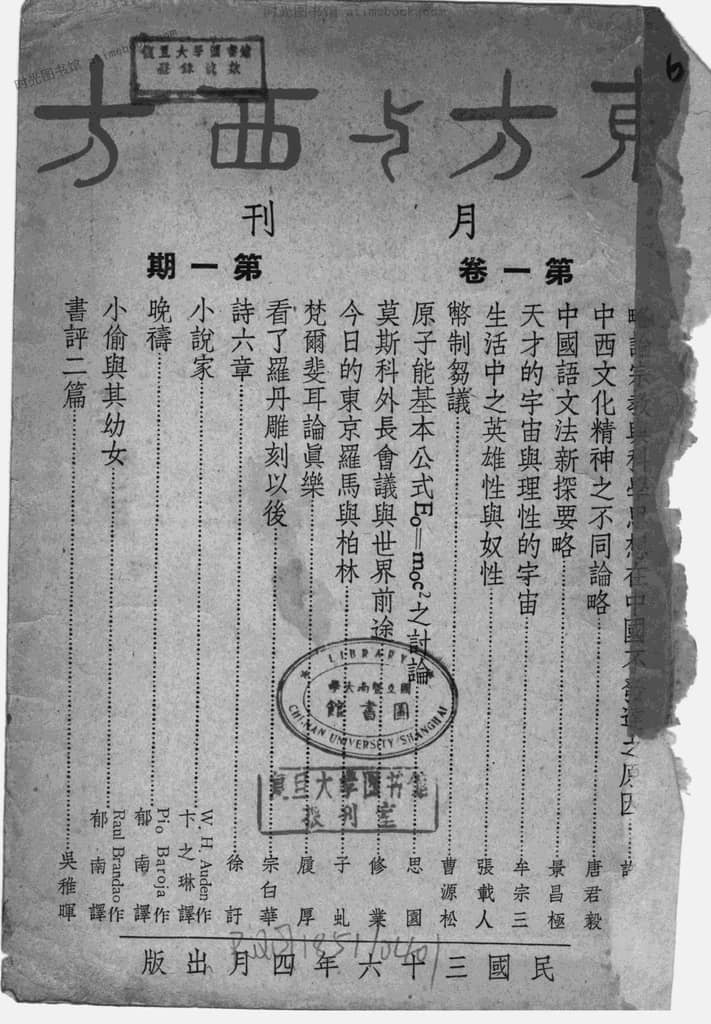 东方与西方
月刊
第一卷
第一期
略論宗教與科學思想在中國不發達之原因……許
中西文化精神之不同論略……唐君毅
中國語文法新探要略……景昌極
天才的宇宙與理性的宇宙……牟宗三
生活中之英雄性與奴性……張載人
幣制芻議……曹源松
原子能基本公式E₀=m₀c²之討論……思園
莫斯科外長會議與世界前途……修業
今日的東京羅馬與柏林……子虬
梵爾斐耳論眞樂……履厚
看了羅丹雕刻以後……宗白華
詩六章……徐訏
小說家……W. H. Auden作 卞之琳譯
晚禱……Pio Baroja作 郁南譯
小偷與其幼女……Raul Brandao作 郁南譯
書評二篇……吳稚暉
民國三十六年四月出版
LIBRARY
國立暨南大學
圖書館
CHI-NAN UNIVERSITY SHANGHAI
復旦大學图书馆
报刊室
復旦大學圖書館
时光图书馆 atimebook.com
时光图书馆 atimebook.com
6